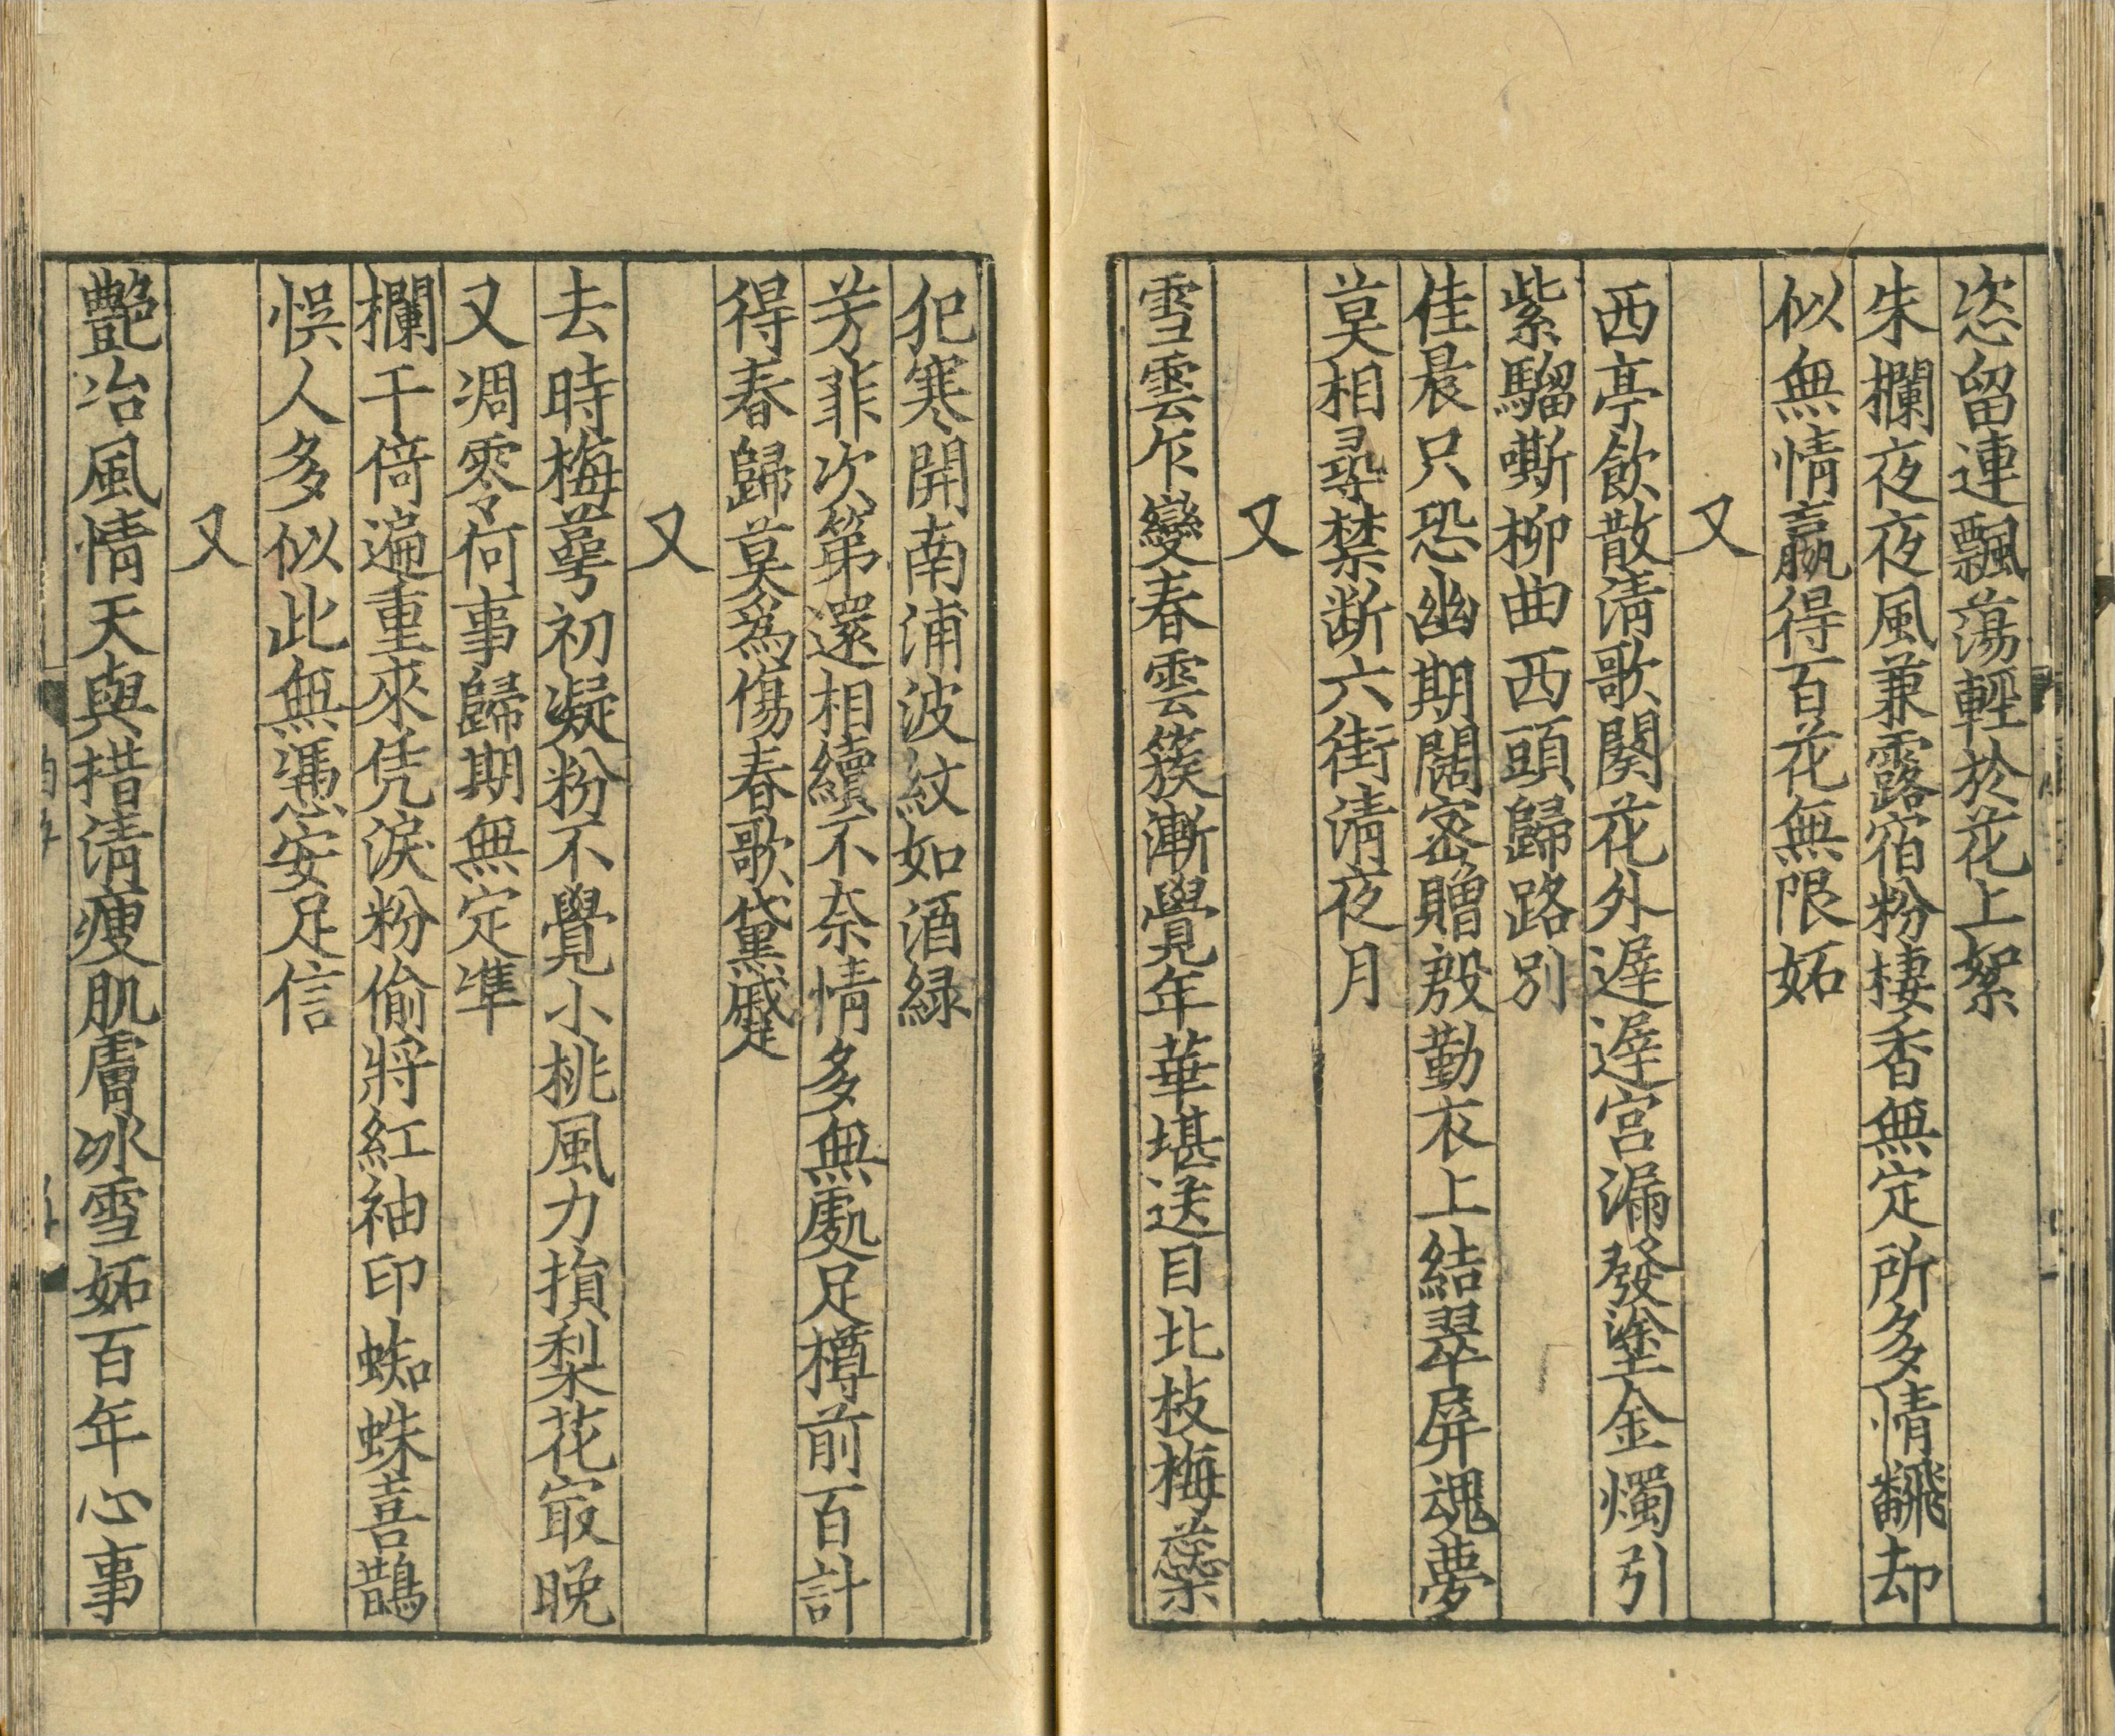 恣留連飄蕩輕於花上絮
朱欄夜夜風兼露宿粉棲香無定所多情飜却
似無情贏得百花無限妬
又
西亭飲散清歌闋花外遲遲宮漏發塗金燭引
紫騮嘶柳曲西頭歸路別
佳晨只恐幽期闊密贈殷勤衣上結翠屏魂夢
莫相尋禁斷六街清夜月
又
雪雲乍變春雲簇漸覺年華堪送目北枝梅蘂
犯寒開南浦波紋如酒綠
芳菲次第還相續不奈情多無處足樽前百計
得春歸莫爲傷春歌黛蹙
又
去時梅萼初凝粉不覺小桃風力損梨花㝡晚
又凋零何事歸期無定準
欄干倚遍重來凭淚粉偷將紅袖印蜘蛛喜鵲
悮人多似此無憑安足信
又
艷冶風情天與措清瘦肌膚冰雪妬百年心事